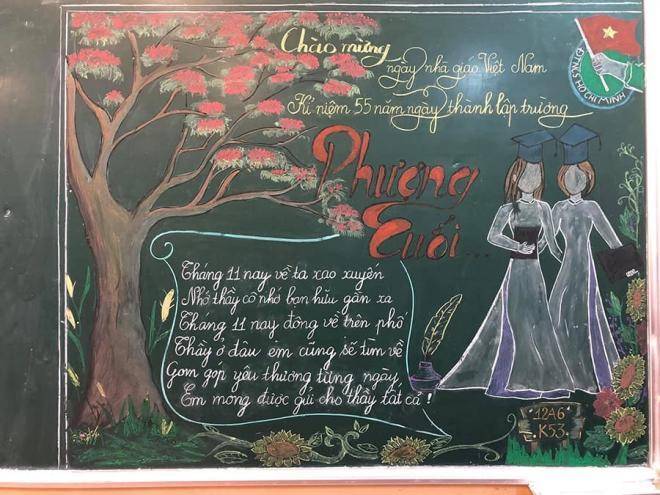 Chào mừng
ngày nhà giáo Việt Nam
Kỉ niệm 55 năm ngày thành lập trường
Phượng
Cuối...
Tháng 11 nay về ta xao xuyên
Nhớ thầy cô nhớ bạn hữu gần xa
Tháng 11 nay đông về trên phố
Thầy ở đâu em cũng sẽ tìm về
Gom góp yêu thương từng ngày
Em mong được gửi cho thầy tất cả !
12A6
K53
ĐOÀN TNCS HỒ CHÍ MINH